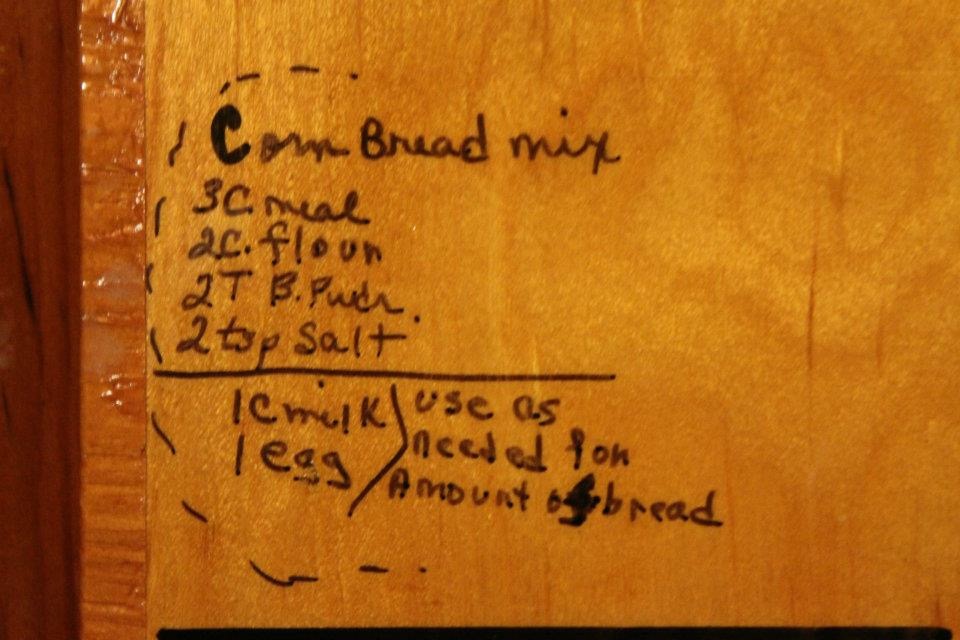 Corn Bread mix
3C. meal
2C. flour
2T B. Pwdr.
2 tsp Salt
1C milk
1 egg
use as
needed for
Amount of bread